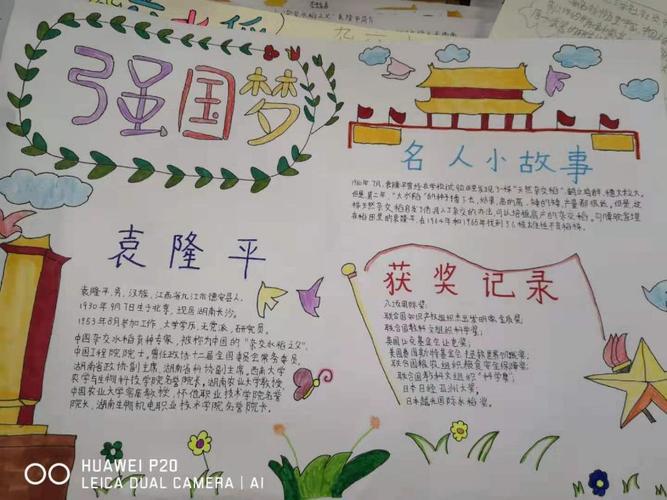 强国梦
名人小故事
1960年7月,袁隆平曾经在学校试验田里发现了一株“天然杂交稻”,鹤立鸡群,穗大粒大。
但是第二年,“大水稻”的种子播下去,结果,高的高、矮的矮,产量都很低。但是,这
株天然杂交稻启发了他用人工杂交的方法,可以培植高产的杂交稻。
在稻田里的袁隆平,在1964年和1965年找到6株雄性不育稻株。
袁隆平
袁隆平,男,汉族,江西省九江市德安县人。
1930年9月7日生于北京,现居湖南长沙。
1953年8月参加工作,大学学历,无党派,研究员。
中国杂交水稻育种专家,被称为中国的“杂交水稻之父”。
中国工程院院士。曾任政协十二届全国委员会常务委员,
湖南省政协副主席,湖南省科协副主席,西南大学
农学与生物科技学院名誉院长,湖南农业大学教授,
中国农业大学客座教授,怀化职业技术学院名誉
院长,湖南生物机电职业技术学院名誉院长。
获奖记录
联合国知识产权组织杰出发明家金质奖;
联合国教科文组织科学奖;
英国让克基金会让克奖;
美国费因斯特基金会拯救世界饥饿奖;
联合国粮农组织粮食安全保障奖;
联合国教科文组织的“科学奖;
日本日经亚洲大奖;
日本越光国际水稻奖。
HUAWEI P20
LEICA DUAL CAMERA | AI